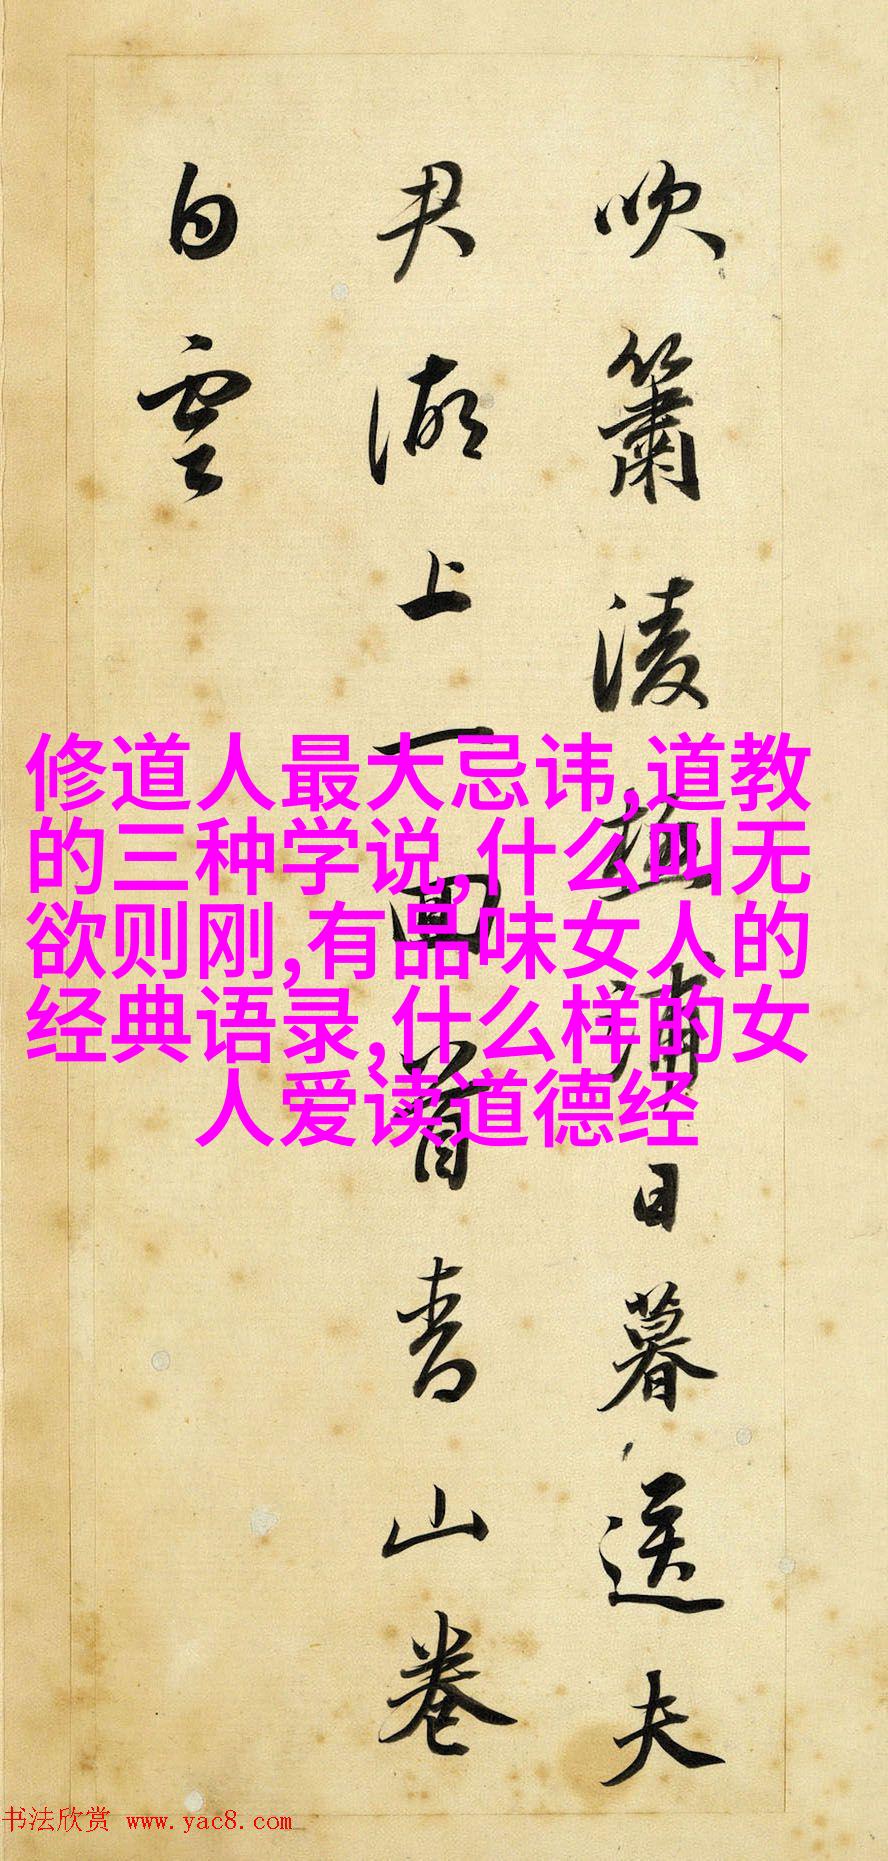 吹簫凌極浦日暮送夫
君湖上一回首青山卷
白雲
修道人最大忌讳,道教
的三种学说,什么叫无
欲则刚,有品味女人的
经典语录,什么样的女
人爱读道德经
书法欣赏 www.yac8.com